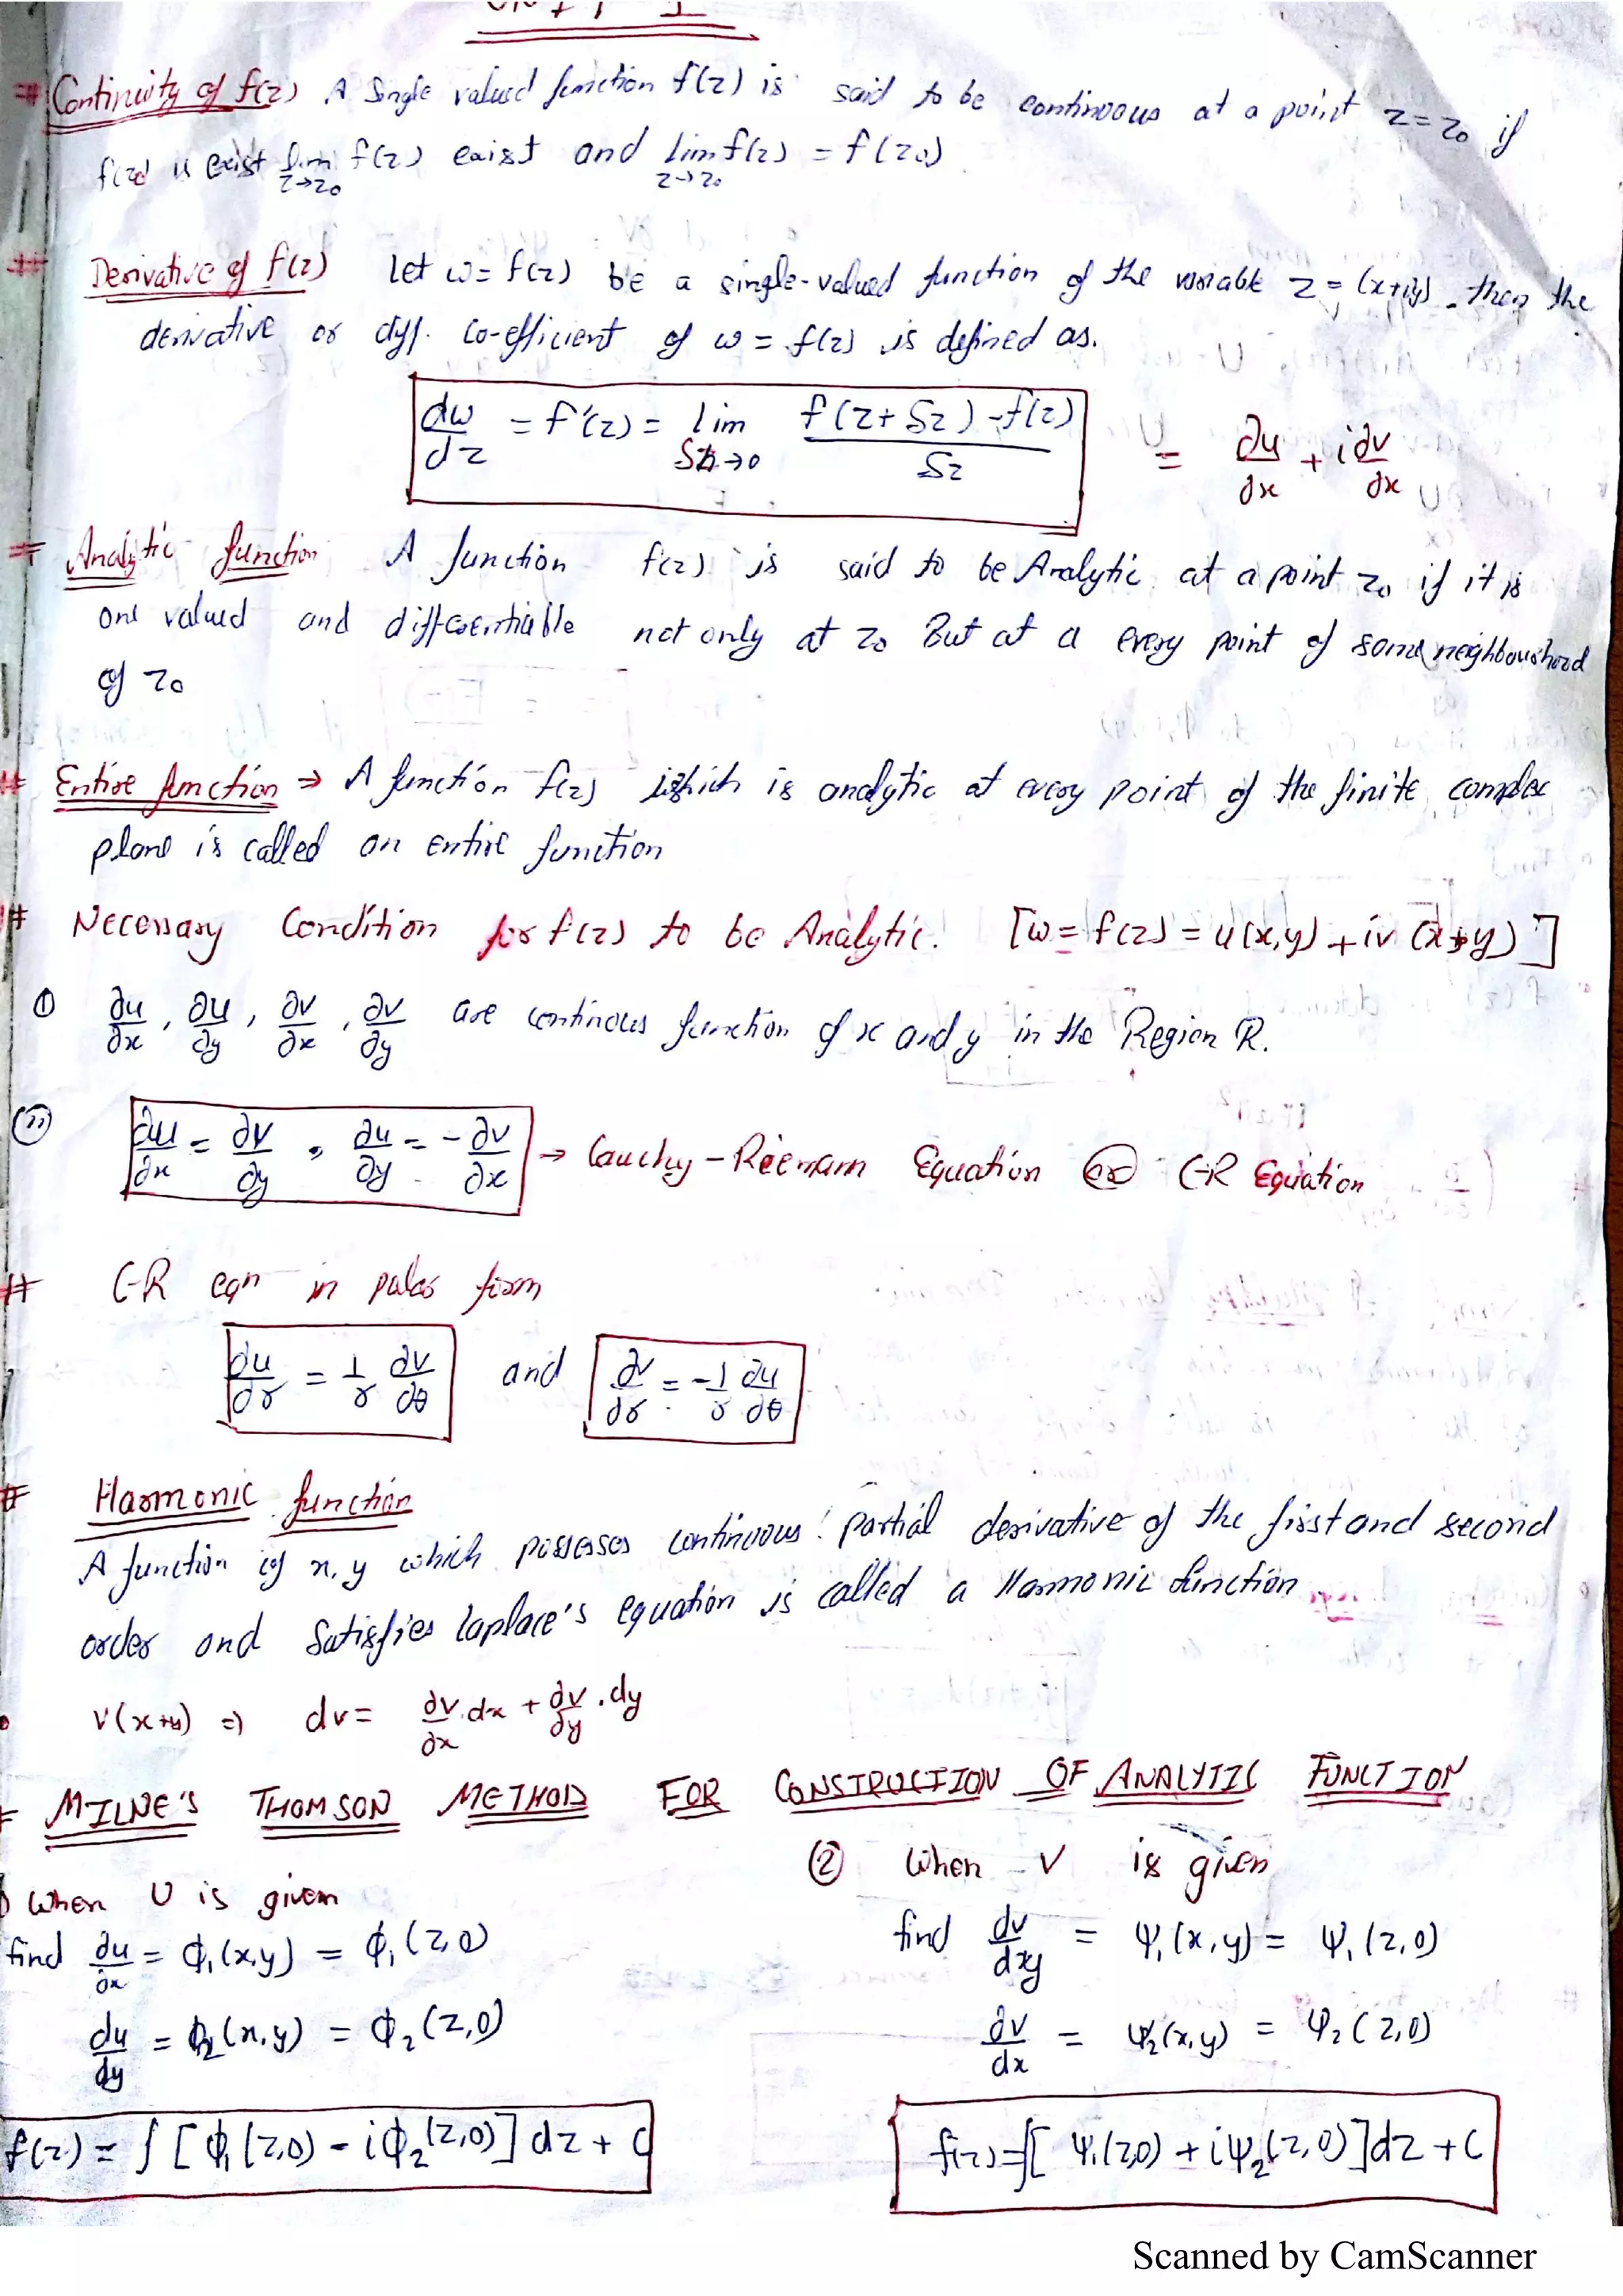 # Continuity of f(z) A Single valued function f(z) is said to be continuous at a point z = z₀ if
f(z₀) is exist lim z→z₀ f(z) exist and lim z→z₀ f(z) = f(z₀)
# Derivative of f(z) Let w = f(z) be a single-valued function of the variable z = (x+iy). then the
derivative or diff. co-efficient of w = f(z) is defined as.
dw/dz = f'(z) = lim δz→0 f(z+δz)-f(z)/δz = ∂u/∂x + i∂v/∂x
# Analytic function A function f(z) is said to be Analytic at a point z₀ if it is
one valued and differentiable not only at z₀ But at a every point of some neighbourhood
of z₀
# Entire function ⇒ A function f(z) which is analytic at every point of the finite complex
plane is called an entire function
# Necessary Condition for f(z) to be Analytic. [w = f(z) = u(x,y) + iv(x,y)]
① ∂u/∂x, ∂u/∂y, ∂v/∂x, ∂v/∂y are continous function of x and y in the Region R.
(ii) ∂u/∂x = ∂v/∂y, ∂u/∂y = -∂v/∂x → Cauchy-Riemann Equation or C-R Equation
# C-R eqn in polar form
∂u/∂r = 1/r ∂v/∂θ and ∂v/∂r = -1/r ∂u/∂θ
# Harmonic function
A function of x, y which possesses continuous partial derivative of the first and second
order and Satisfies Laplace's equation is called a Harmonic function
v(x+y) ⇒ dv = ∂v/∂x.dx + ∂v/∂y.dy
MILNE'S THOMSON METHOD FOR CONSTRUCTION OF ANALYTIC FUNCTION
When U is given
find ∂u/∂x = ϕ₁(x,y) = ϕ₁(z,0)
du/dy = ϕ₂(x,y) = ϕ₂(z,0)
f(z) = ∫[ϕ₁(z,0) - iϕ₂(z,0)]dz + C
② When V is given
find dv/dy = Ψ₁(x,y) = Ψ₁(z,0)
∂v/dx = Ψ₂(x,y) = Ψ₂(z,0)
f(z) = ∫[Ψ₁(z,0) + iΨ₂(z,0)]dz + C
Scanned by CamScanner